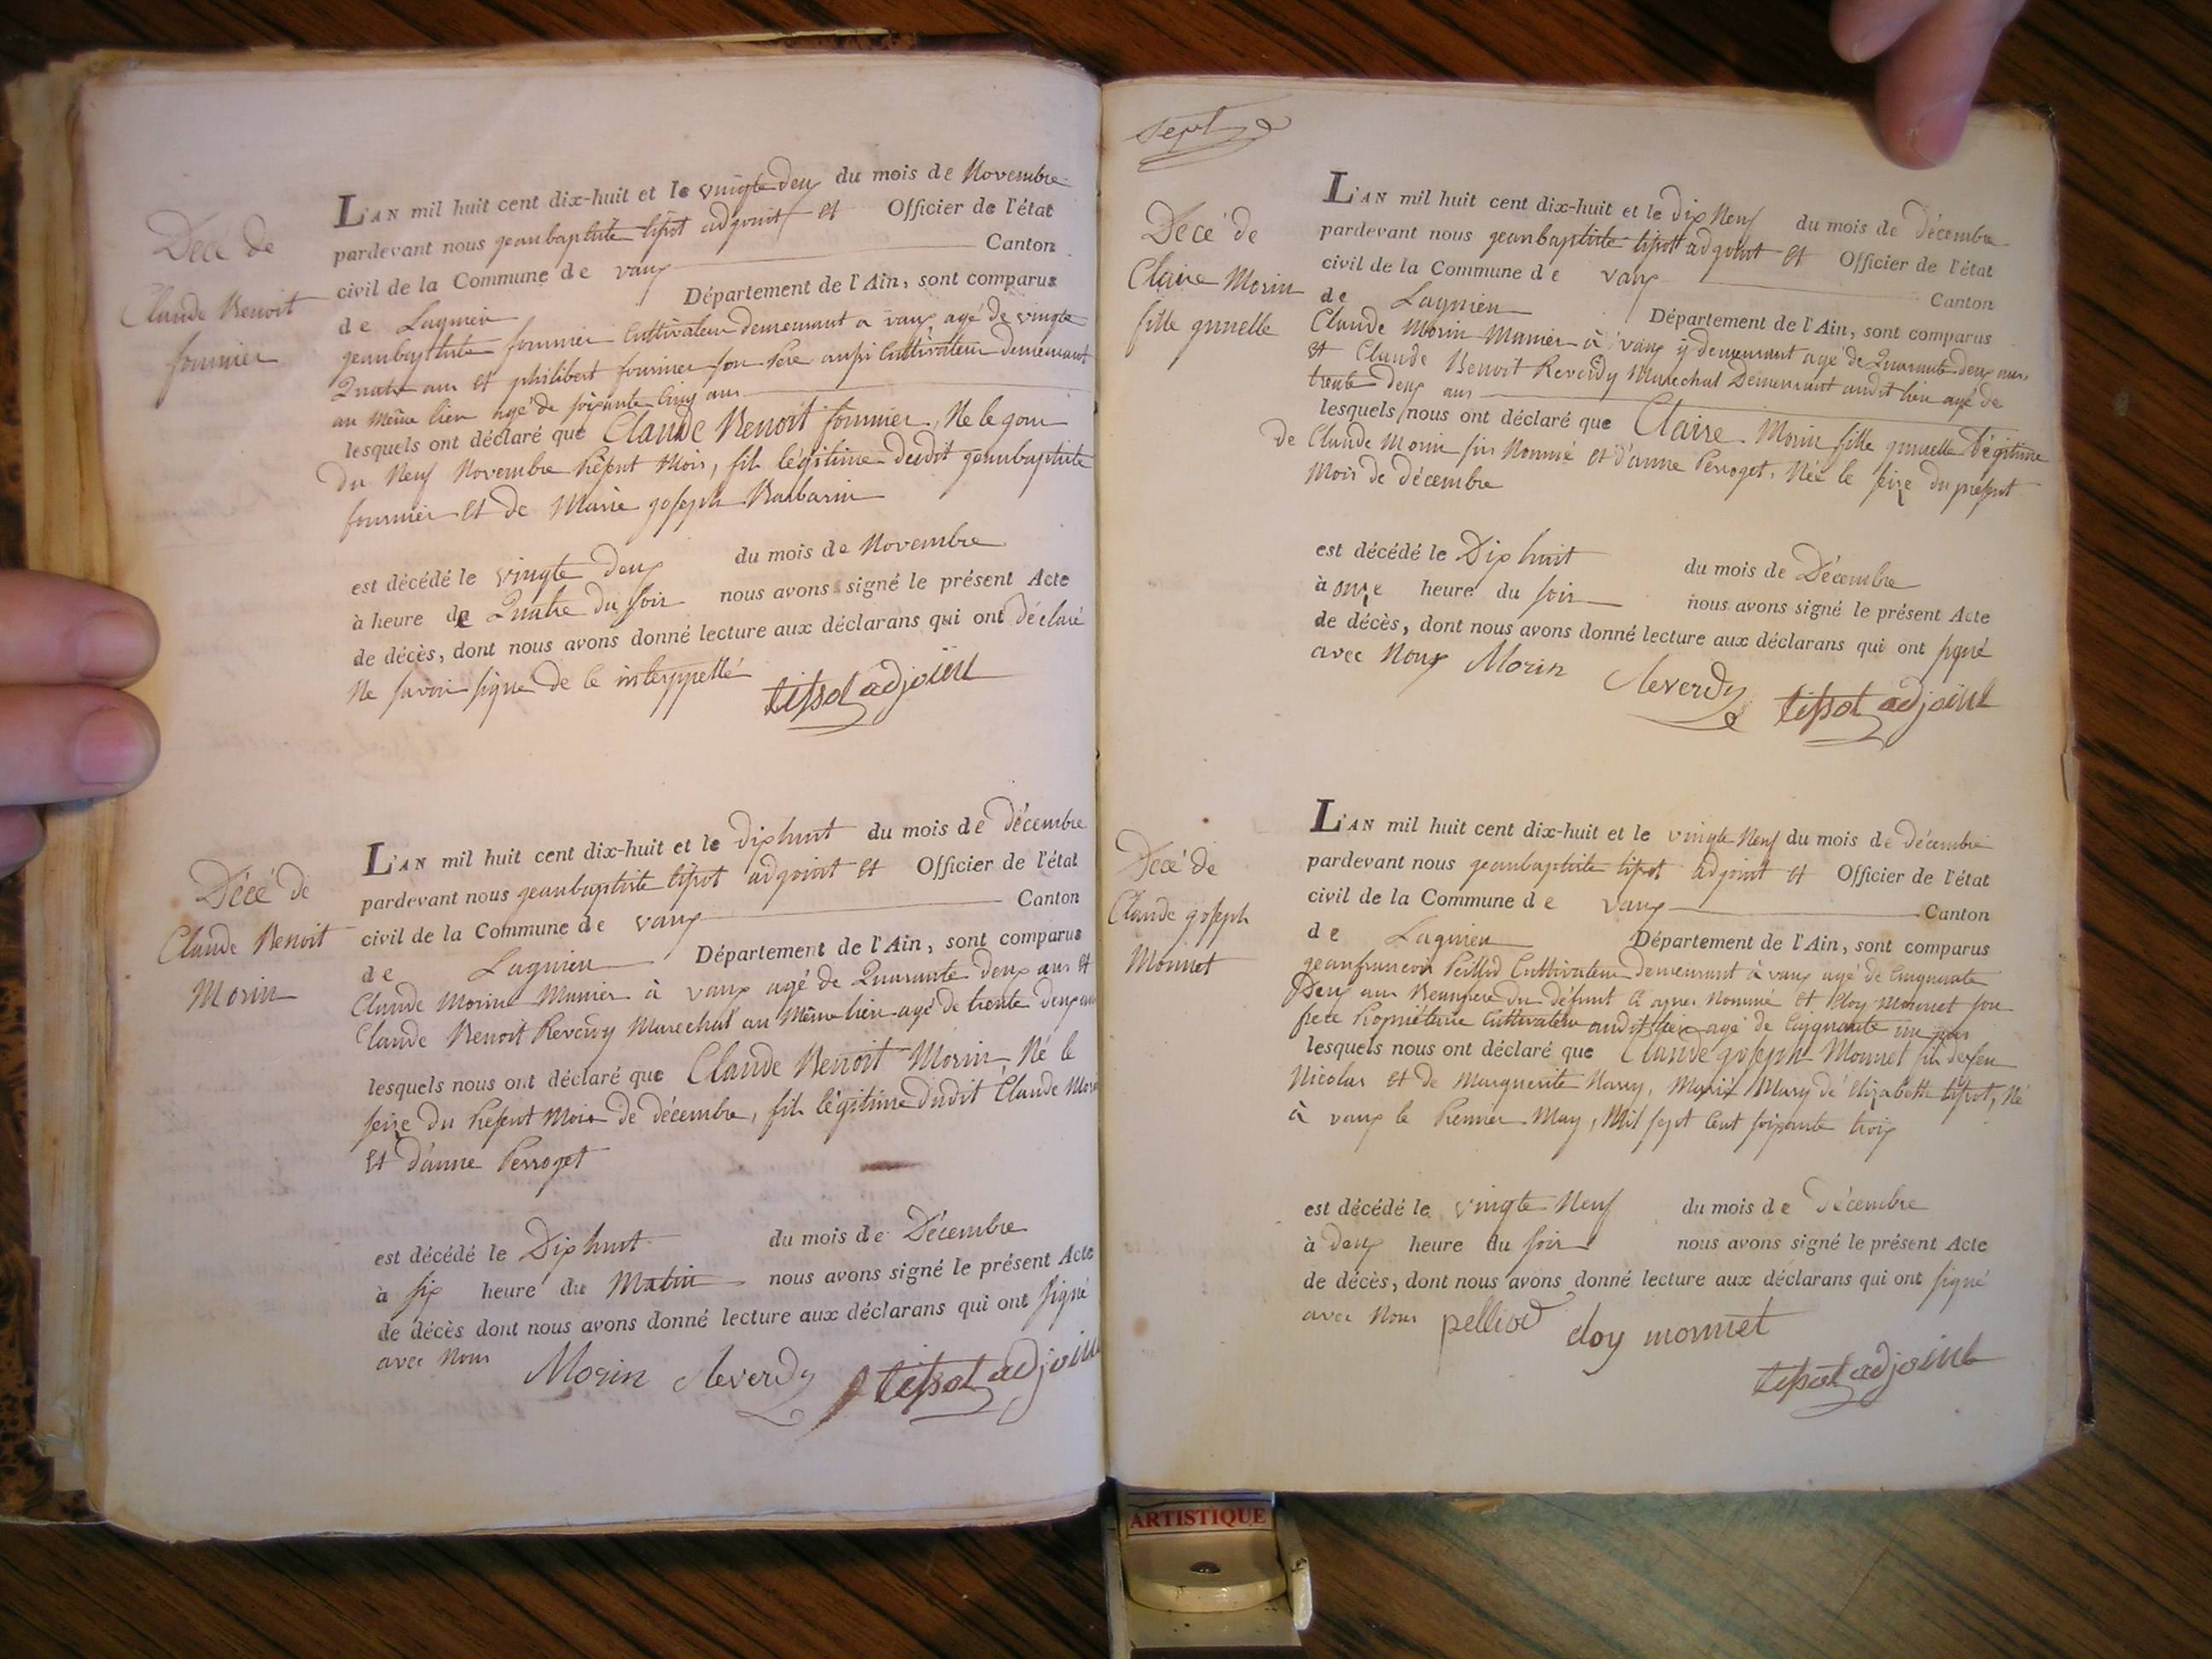 Décé de
Claude Benoit
fournier
L'AN mil huit cent dix-huit et le vingte deux du mois de Novembre
pardevant nous geanbaptiste tissot adgoint et Officier de l'état
civil de la Commune de vaux Canton
de Lagnieu Département de l'Ain, sont comparus
geanbaptiste fournier Cultivateur demeurant a vaux agé de vingte
Quatre ans et philibert fournier son Pere aussi Cultivateur demeurant
au même lieu agé de soixante Cinq ans
lesquels ont déclaré que Claude Benoit fournier, Né le gour
du Neuf Novembre Présent Mois, fils légitime dudit geanbaptiste
fournier et de Marie goseph Barbarin
est décédé le vingte deux du mois de Novembre
à heure de Quatre du soir nous avons signé le présent Acte
de décès, dont nous avons donné lecture aux déclarans qui ont déclaré
Ne savoir signer de ce interppellé tissot adjoint
Décé de
Claude Benoit
Morin
L'AN mil huit cent dix-huit et le dix huit du mois de décembre
pardevant nous geanbaptiste tissot adgoint et Officier de l'état
civil de la Commune de vaux Canton
de Lagnieu Département de l'Ain, sont comparus
Claude Morin Munier à vaux agé de Quarante deux ans et
Claude Benoit Reverdy Marechal au Même lieu agé de trente deux ans
lesquels nous ont déclaré que Claude Benoit Morin Né le
seize du Présent Mois de décembre, fils légitime dudit Claude Morin
et d'anne Perroget
est décédé le Dix huit du mois de Décembre
à six heure du Matin nous avons signé le présent Acte
de décès dont nous avons donné lecture aux déclarans qui ont signé
avec Nous Morin Reverdy tissot adjoint
sept
Décé de
Claire Morin
fille gumelle
L'AN mil huit cent dix-huit et le dix Neuf du mois de décembre
pardevant nous geanbaptiste tissot adgoint et Officier de l'état
civil de la Commune de vaux Canton
de Lagnieu Département de l'Ain, sont comparus
Claude Morin Munier à vaux y demeurant agé de Quarante deux ans
et Claude Benoit Reverdy Marechal Demeurant audit lieu agé de
trente deux ans
lesquels nous ont déclaré que Claire Morin fille gumelle Légitime
de Claude Morin sus Nommé et d'anne Perroget, Née le seize du présent
Mois de décembre
est décédé le Dix huit du mois de Décembre
à onze heure du soir nous avons signé le présent Acte
de décès, dont nous avons donné lecture aux déclarans qui ont signé
avec Nous Morin Reverdy tissot adjoint
Décé de
Claude goseph
Monnet
L'AN mil huit cent dix-huit et le vingte Neuf du mois de décembre
pardevant nous geanbaptiste tissot adjoint et Officier de l'état
civil de la Commune de vaux Canton
de Lagnieu Département de l'Ain, sont comparus
geanfrancois Peillod Cultivateur demeurant à vaux agé de Cinquante
Deux ans Beaupere du défunt Ci apres Nommé et Eloy Monnet son
frere Propriétaire Cultivateur audit lieu agé de Cinquante un ans
lesquels nous ont déclaré que Claude goseph Monnet fils de feu
Nicolas et de Marguerite Mary de Elizabeth tissot, Né
à vaux le Premier May, Mil sept Cent soixante trois
est décédé le vingte Neuf du mois de Décembre
à deux heure du soir nous avons signé le présent Acte
de décès, dont nous avons donné lecture aux déclarans qui ont signé
avec Nous pelliod eloy monnet
tissot adjoint
ARTISTIQUE